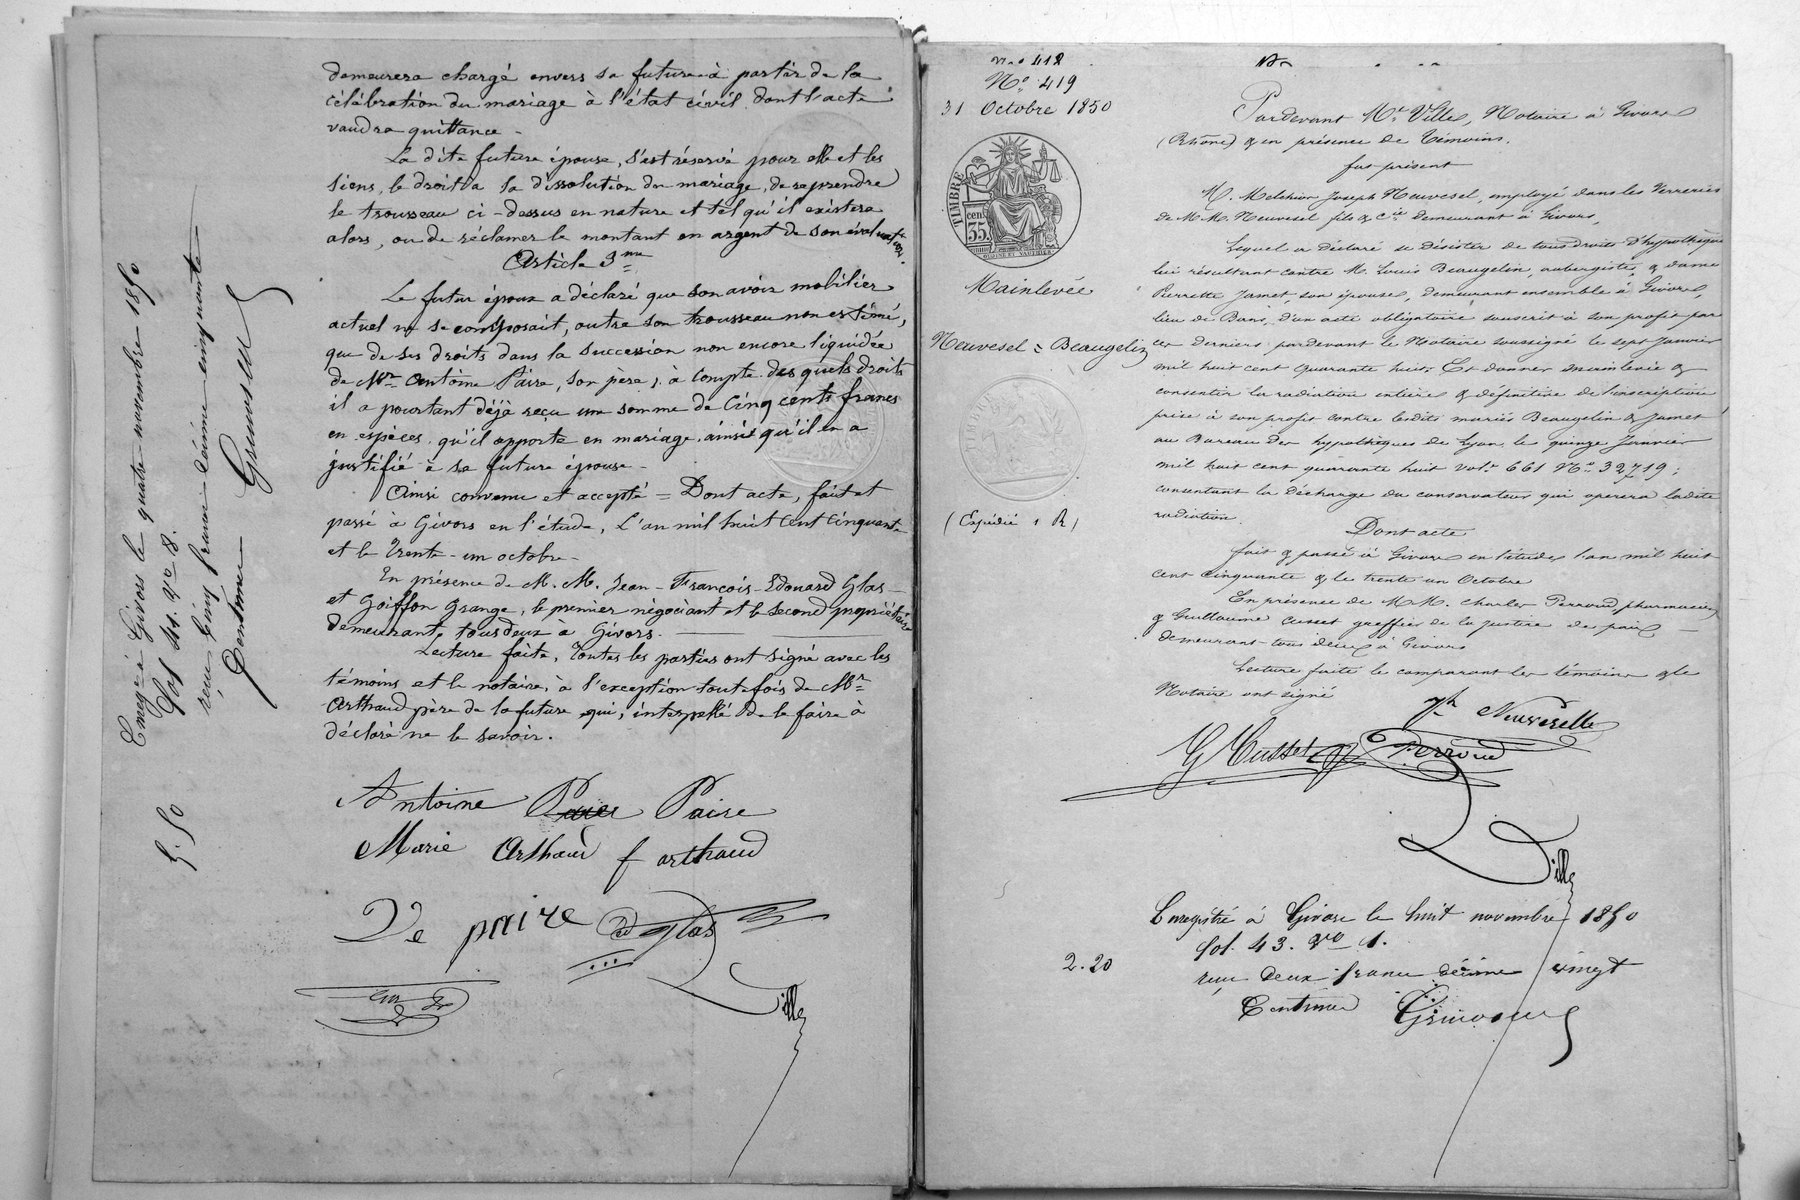 demeurera chargé envers sa future à partir de la
célébration du mariage à l'état civil dont l'acte
vaudra quittance -
La dite future épouse, s'est réservé pour elle et les
siens, le droit à la dissolution du mariage, de reprendre
le trousseau ci-dessus en nature et tel qu'il existera
alors, ou de réclamer le montant en argent de son évaluation.
Article 3me
Le futur époux a déclaré que son avoir mobilier
actuel ne se composait, outre son trousseau non estimé,
que de ses droits dans la succession non encore liquidée
de Mr Antoine Paire, son père, à compte des quels droits
il a pourtant déjà reçu une somme de Cinq cents francs
en espèces qu'il apporte en mariage, ainsi qu'il en a
justifié à sa future épouse -
Ainsi convenu et accepté = Dont acte, fait et
passé à Givors en l'étude, L'an mil huit cent cinquante
et le Trente-un octobre -
En présence de M. M. Jean-François-Edouard Glas
et Goiffon Grange, le premier négociant et le second propriétaire
demeurants tous deux à Givors.
Lecture faite, toutes les parties ont signé avec les
témoins et le notaire, à l'exception toutefois de Mr
Arthaud père de la future qui, interpellé de le faire à
déclaré ne le savoir.
Antoine Paire Paire
Marie Arthaud f arthaud
Ve paire Ed glas
Ville
Enregé à Givors le quatre novembre 1850
fol 41. Vo 8.
reçu cinq francs décime cinquante
Centimes
5.50
no 412
No 419
31 Octobre 1850
TIMBRE
35 cen
Mainlevée
Neuvesel = Beaugelin
(Expédié 1 R)
Pardevant Me Ville, Notaire à Givors
(Rhône) & en présence de Témoins,
fut présent
M. Melchior Joseph Neuvesel, employé dans les Verreries
de M M. Neuvesel fils & Cie demeurant à Givors,
Lequel a déclaré se désister de tous droits d'hypothèque
lui résultant contre M. Louis Beaugelin, aubergiste, & dame
Pierrette Jamet, son épouse, demeurant ensemble à Givors,
lieu de Bans, d'un acte obligatoire souscrit à son profit par
ces derniers pardevant le Notaire soussigné le sept Janvier
mil huit cent quarante huit, Et donner mainlevée &
consentir la radiation entière & définitive de l'inscription
prise à son profit contre lesdits mariés Beaugelin & Jamet
au Bureau des hypothèques de Lyon, le quinze Janvier
mil huit cent quarante huit vol. 661 No 32719;
consentant la décharge du conservateur qui opérera ladite
radiation.
Dont acte
fait & passé à Givors en l'étude l'an mil huit
cent cinquante & le trente un Octobre
En présence de M M. Charles Perroud, pharmacien,
& Guillaume Cusset greffier de la justice de paix
demeurant tous deux à Givors
Lecture faite le comparant les témoins & le
Notaire ont signé
Jh Neuveselle
G Cusset Perroud
Ville
Enregistré à Givors le huit novembre 1850
fol. 43. Vo 1.
2.20
reçu deux francs décime vingt
Centimes